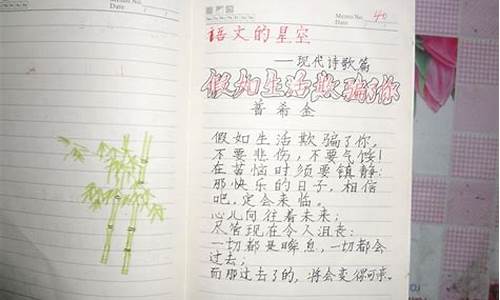 Memo No. 40
Date
语文的星空
——现代诗歌篇
假如生活欺骗了你
普希金
假如生活欺骗了你,
不要悲伤,不要气馁!
在苦恼时须要镇静:
那快乐的日子,相信
吧,定会来临。
心儿向往着未来;
尽皆现在令人沮丧:
一切都是瞬息,一切都会
过去;
而那过去了的,将会变得可亲。